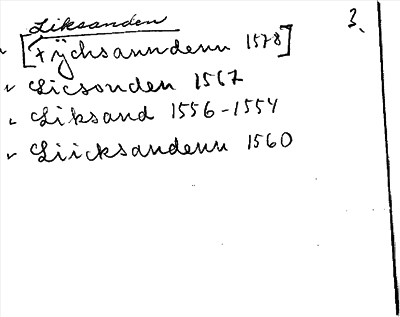 Liksanden 3.
[+ ÿchsanndenn 1578]
v Licsonden 1567
v Liksand 1556-1554
v Liicksandenn 1560